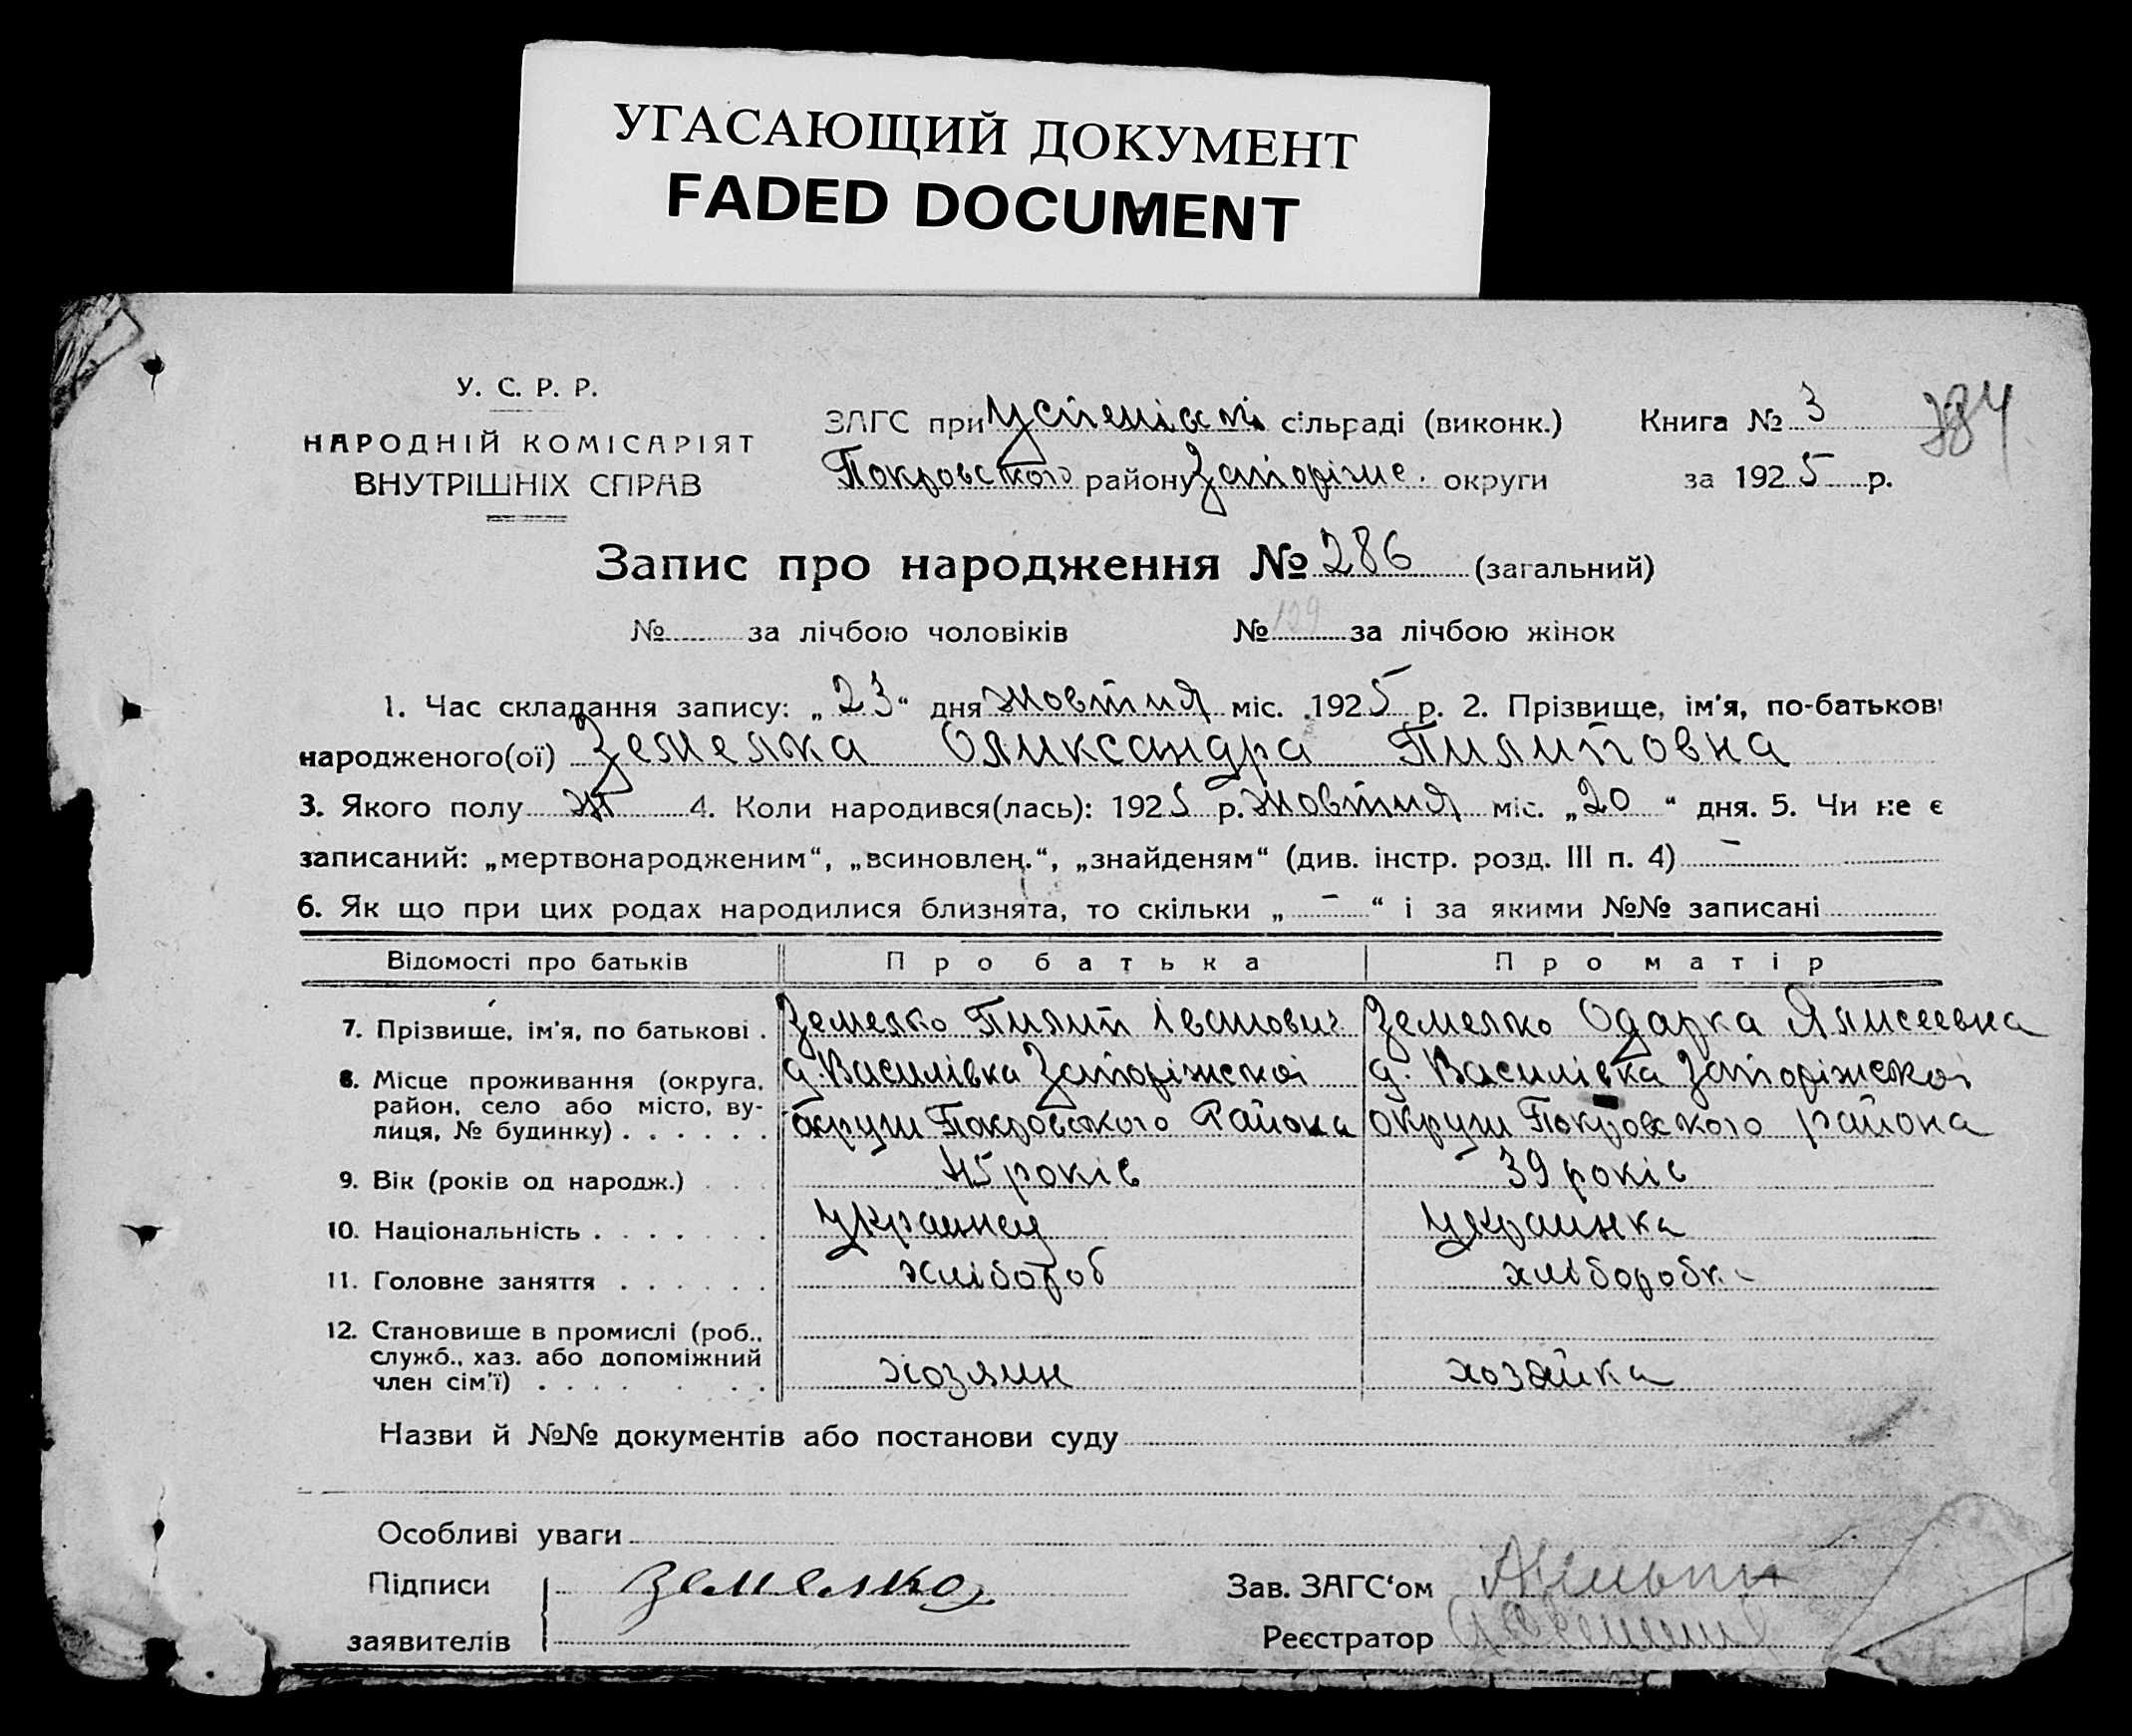 УГАСАЮЩИЙ ДОКУМЕНТ
FADED DOCUMENT
У. С. Р. Р.
НАРОДНІЙ КОМІСАРІЯТ
ВНУТРІШНІХ СПРАВ
ЗАГС при Успенівській сільраді (виконк.)
Покровського району Запоріже. округи
Книга № 3
384
за 1925 р.
Запис про народження № 286 (загальний)
№ за лічбою чоловіків № 129 за лічбою жінок
1. Час складання запису: „23“ дня жовтня міс. 1925 р. 2. Прізвище, ім'я, по-батькові
народженого(ої) Земелка Олександра Пилиповна
3. Якого полу ж 4. Коли народився(лась): 1925 р. жовтня міс. „20“ дня. 5. Чи не є
записаний: „мертвонародженим“, „всиновлен.“, „знайденям“ (див. інстр. розд. III п. 4) –
6. Як що при цих родах народилися близнята, то скільки „–“ і за якими №№ записані
Відомості про батьків Про батька Про матір
7. Прізвище, ім'я, по батькові . Земелко Пилип Іванович Земелко Одарка Ялисеевна
8. Місце проживання (округа, район, село або місто, вулиця, № будинку) . . . . . .
д. Василівка Запоріжскоі округи Покровського Района
д. Василівка Запоріжскоі округи Покровского района
9. Вік (років од народж.) . . . 45 років 39 років
10. Національність . . . . . . . Украинец Украинка
11. Головне заняття . . . . . . хлібороб хлиборобка
12. Становище в промислі (роб., служб., хаз. або допоміжний член сім'ї) . . . . . . .
хозяин хозяйка
Назви й №№ документів або постанови суду
Особливі уваги
Підписи Земелко Зав. ЗАГС‘ом
заявителів Реєстратор